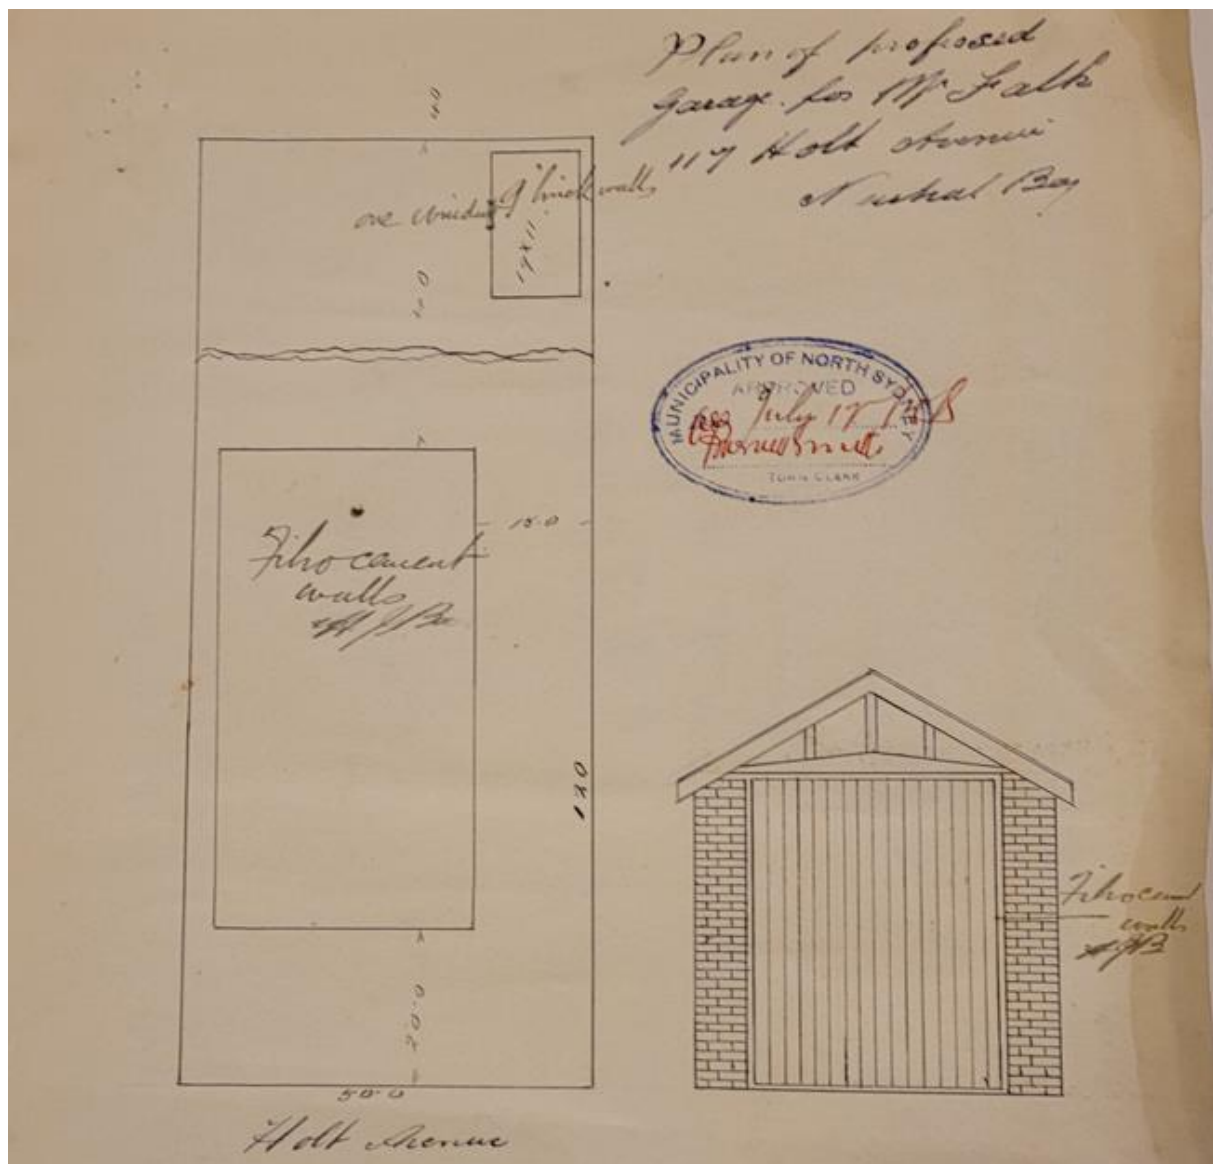 Plan of proposed
Garage for Mr Falk
117 Holt Avenue
Neutral Bay
40
one window 9" brick walls
MUNICIPALITY OF NORTH SYDNEY
APPROVED
July
TOWN CLERK
15-0
Fibrocement
walls
120
Fibrocement
walls
20-0
50-0
Holt Avenue